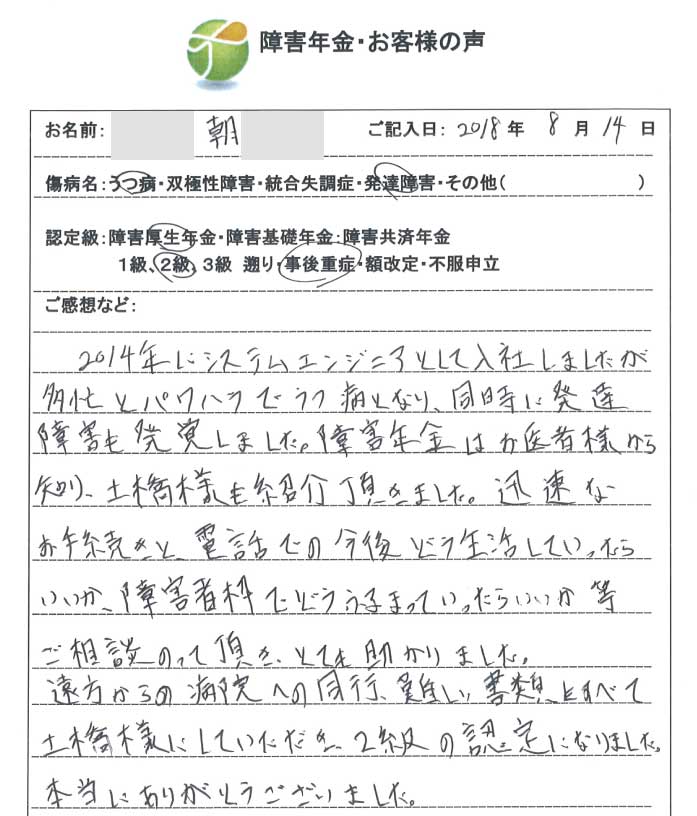 障害年金・お客様の声
お名前: 朝 ご記入日: 2018年 8月 14日
傷病名:うつ病・双極性障害・統合失調症・発達障害・その他( )
認定級:障害厚生年金・障害基礎年金:障害共済年金
1級、2級、3級 遡り・事後重症・額改定・不服申立
ご感想など:
2014年にシステムエンジニアとして入社しましたが
多忙とパワハラでうつ病となり、同時に発達
障害も発覚しました。障害年金はお医者様から
知り、土橋様も紹介頂きました。迅速な
お手続きと、電話での今後どう生活していったら
いいか、障害者枠でどうふるまっていったらいいか等
ご相談のって頂き、とても助かりました。
遠方からの病院への同行、難しい書類、とすべて
土橋様にしていただき、2級の認定になりました。
本当にありがとうございました。